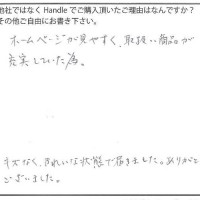 他社ではなく Handle でご購入頂いたご理由はなんですか？
その他ご自由にお書き下さい。
ホームページが見やすく、取扱い商品が
充実していた為。
キズなく、きれいな状態で届きました。ありがとう
ございました。